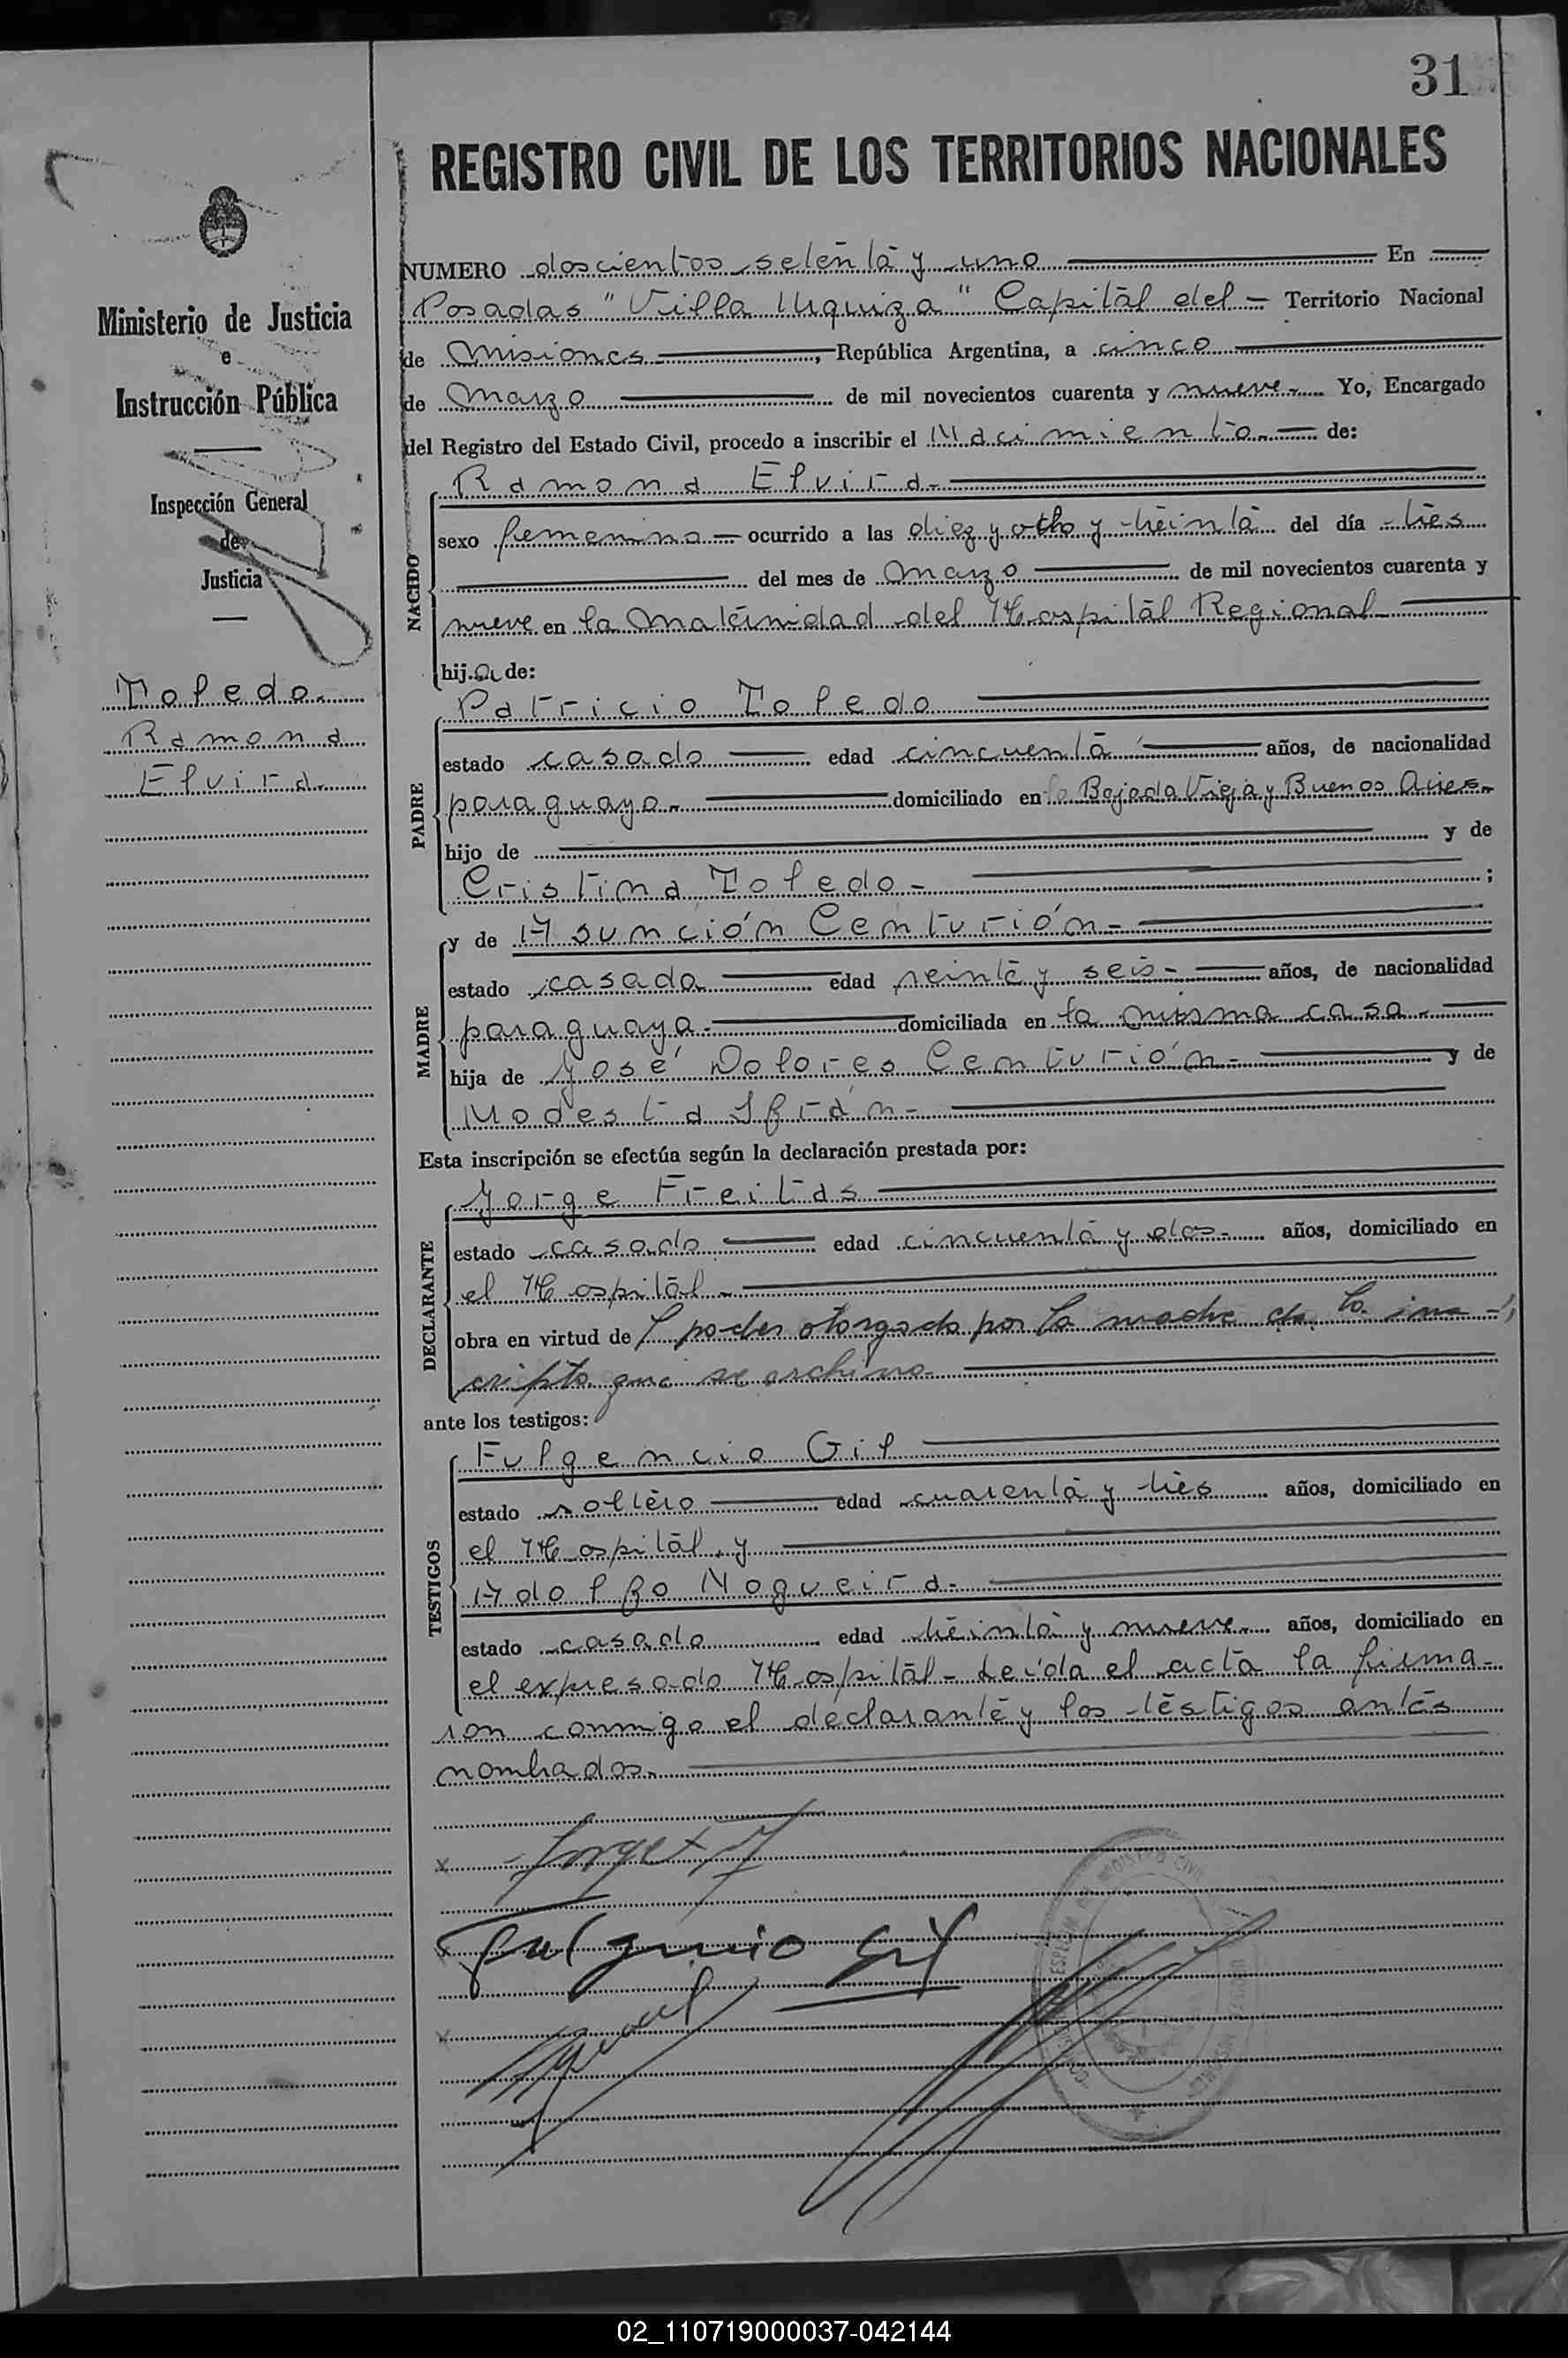 31
REGISTRO CIVIL DE LOS TERRITORIOS NACIONALES
Ministerio de Justicia
e
Instrucción Pública
Inspección General
de
Justicia
Toledo
Ramona
Elvira
NUMERO doscientos setenta y uno En
Posadas "Villa Urquiza" Capital del Territorio Nacional
de Misiones, República Argentina, a cinco
de Marzo de mil novecientos cuarenta y nueve Yo, Encargado
del Registro del Estado Civil, procedo a inscribir el Nacimiento de:
NACIDO
Ramona Elvira
sexo femenino ocurrido a las diez y ocho y treinta del día tres
del mes de Marzo de mil novecientos cuarenta y
nueve en la Maternidad del Hospital Regional
hija de:
PADRE
Patricio Toledo
estado casado edad cincuenta años, de nacionalidad
paraguaya domiciliado en Bajada Vieja y Buenos Aires
hijo de y de
Cristina Toledo ;
MADRE
y de Asunción Centurión
estado casada edad veinte y seis años, de nacionalidad
paraguaya domiciliada en la misma casa
hija de José Dolores Centurión y de
Modesta Ifrán
Esta inscripción se efectúa según la declaración prestada por:
DECLARANTE
Jorge Freitas
estado casado edad cincuenta y dos años, domiciliado en
el Hospital
obra en virtud de poder otorgado por la madre de la ins-
cripta que se archiva
ante los testigos:
TESTIGOS
Fulgencio Gil
estado soltero edad cuarenta y tres años, domiciliado en
el Hospital, y
Adolfo Nogueira
estado casado edad treinta y nueve años, domiciliado en
el expresado Hospital - Leída el acta la firma-
ron conmigo el declarante y los testigos antes
nombrados.
Jorge
Fulgencio Gil
02_110719000037-042144